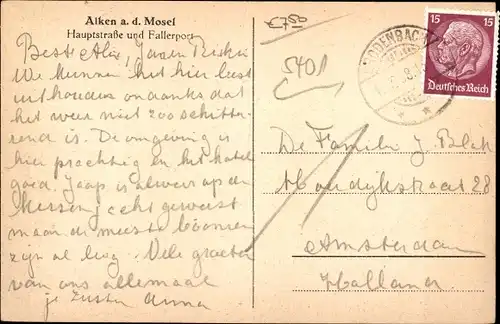 Aiken a. d. Mosel
Hauptstraße und Fallerport
€ 7 50
5401
15 15
Deutsches Reich
Beste
We kunnen het hier best
uithouden ondanks dat
het weer niet zoo schitte-
rend is. De omgeving is
hier prachtig en het hotel
goed. Jaap is alweer op de
echt geweest
maar de meeste boomen
zijn al leeg. Vele groeten
van ons allemaal
je zuster Anna
De Familie J. Blok
28
Amsterdam
Holland